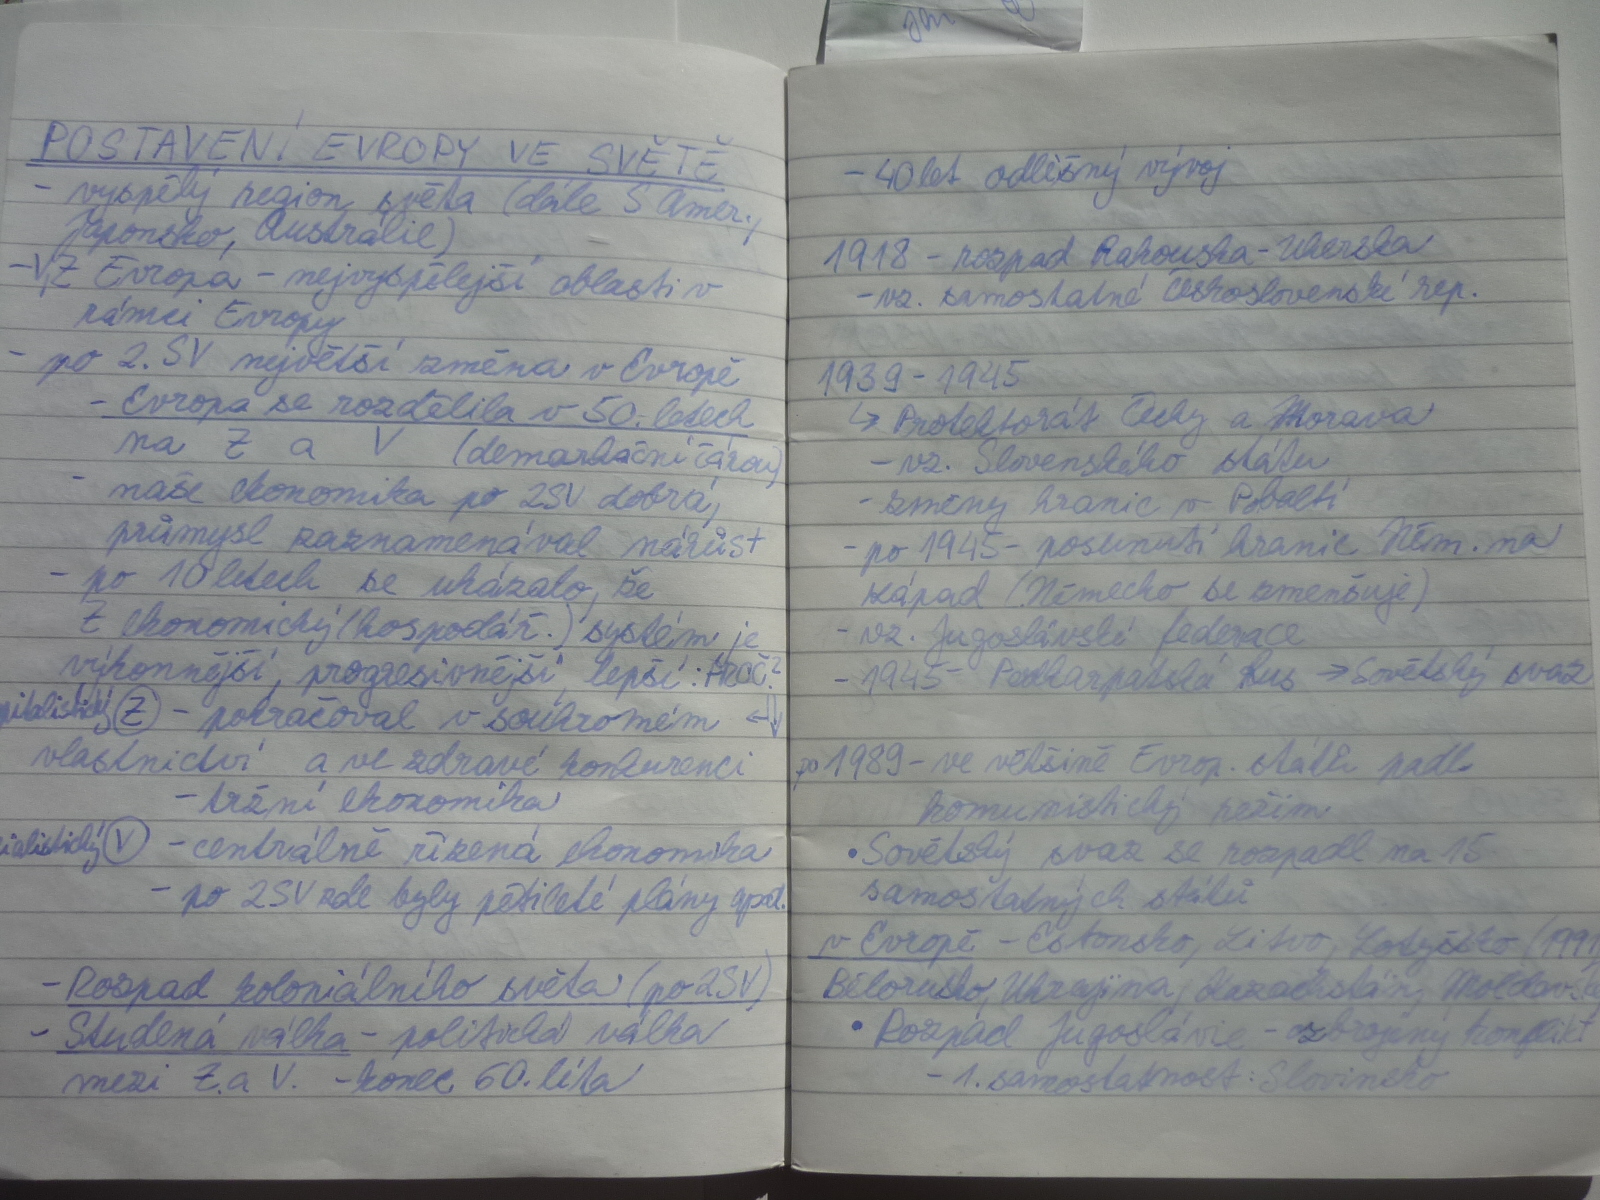 POSTAVENÍ EVROPY VE SVĚTĚ
- vyspělý region světa (dále S Amer.,
Japonsko, Austrálie)
- V,Z Evropa - nejvyspělejší oblasti v
rámci Evropy
- po 2.SV největší změna v Evropě
- Evropa se rozdělila v 50. letech
na Z a V (demarkační čárou)
- naše ekonomika po 2SV dobrá,
průmysl zaznamenával nárůst
- po 10 letech se ukázalo, že
Z ekonomický (hospodář.) systém je
výkonnější, progresivnější, lepší: PROČ?
pitalistický Z - pokračoval v soukromém
vlastnictví a ve zdravé konkurenci
- tržní ekonomika
cialistický V - centrálně řízená ekonomika
- po 2SV zde byly pětileté plány apod.
- Rozpad koloniálního světa (po 2SV)
- Studená válka - politická válka
mezi Z. a V. - konec 60. léta
- 40 let odlišný vývoj
1918 - rozpad Rakouska-Uherska
- vz. samostatné Československé rep.
1939 - 1945
↳ Protektorát Čechy a Morava
- vz. Slovenského státu
- změny hranic v Pobaltí
- po 1945 - posunutí hranic Něm. na
západ (Německo se zmenšuje)
- vz. Jugoslávské federace
- 1945 - Podkarpatská Rus → Sovětský svaz
po 1989 - ve většině Evrop. států padl
komunistický režim
• Sovětský svaz se rozpadl na 15
samostatných států
v Evropě - Estonsko, Litva, Lotyšsko (1991
Bělorusko, Ukrajina, Kazachstán, Moldavsko
• Rozpad Jugoslávie - ozbrojený konflikt
- 1. samostatnost: Slovinsko